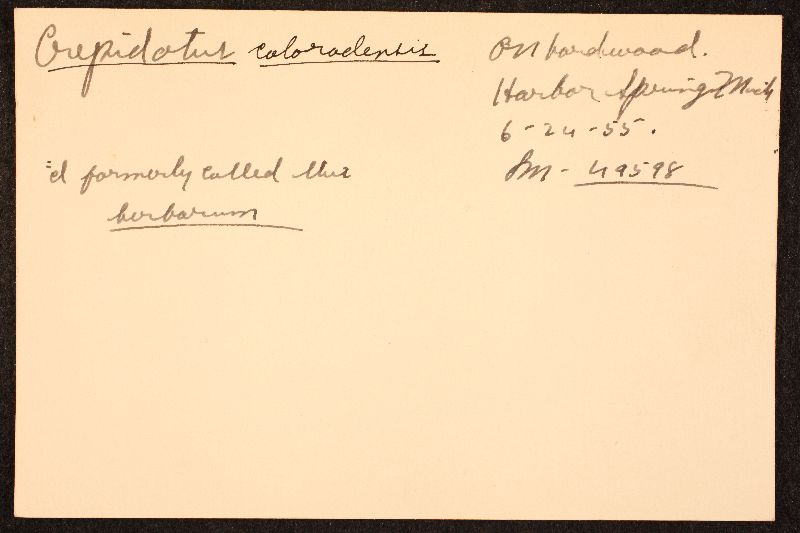 Crepidotus coloradensis
on hardwood.
Harbor Springs Mich
6-24-55.
Sm- 49598
I formerly called this
herbarum